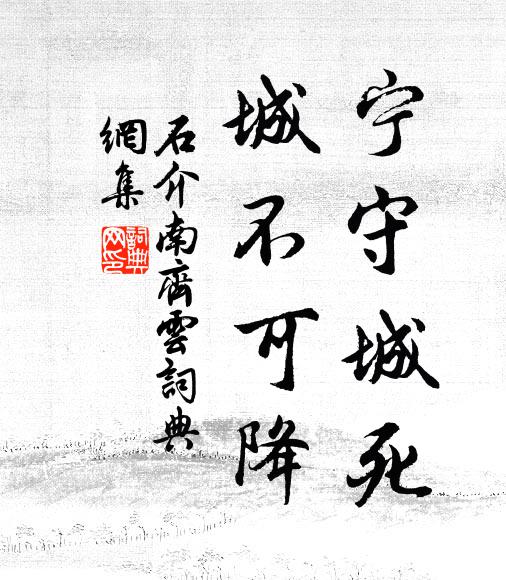 宁守城死
城不可降
石介南齊雲詞典
網集
詞典
网印